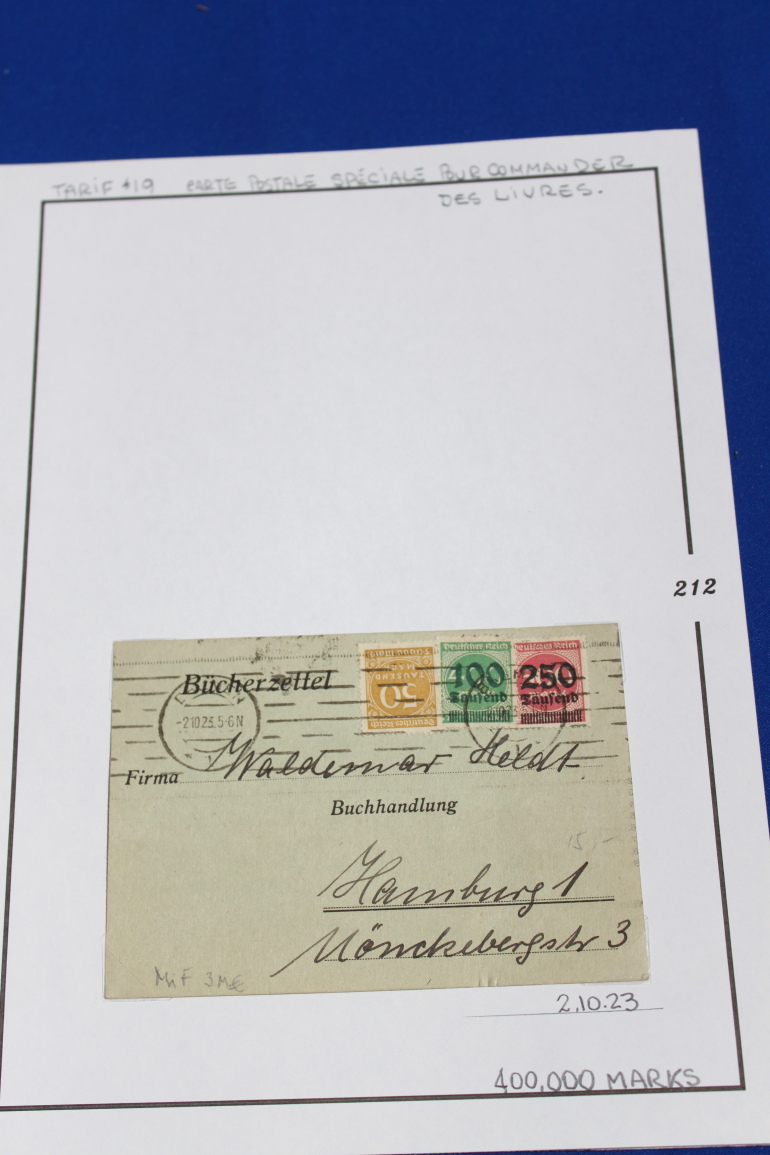 TARIF #19 CARTE POSTALE SPÉCIALE POUR COMMANDER
DES LIVRES.
212
Bücherzettel
-2.10.23.5-6N
Deutsches Reich
50
TAUSEND
MARK
Deutsches Reich
100
Tausend
Deutsches Reich
250
Tausend
Firma Waldemar Heldt
Buchhandlung
15,-
Hamburg 1
Mönckebergstr 3
MiF 3M€
2.10.23
400,000 MARKS